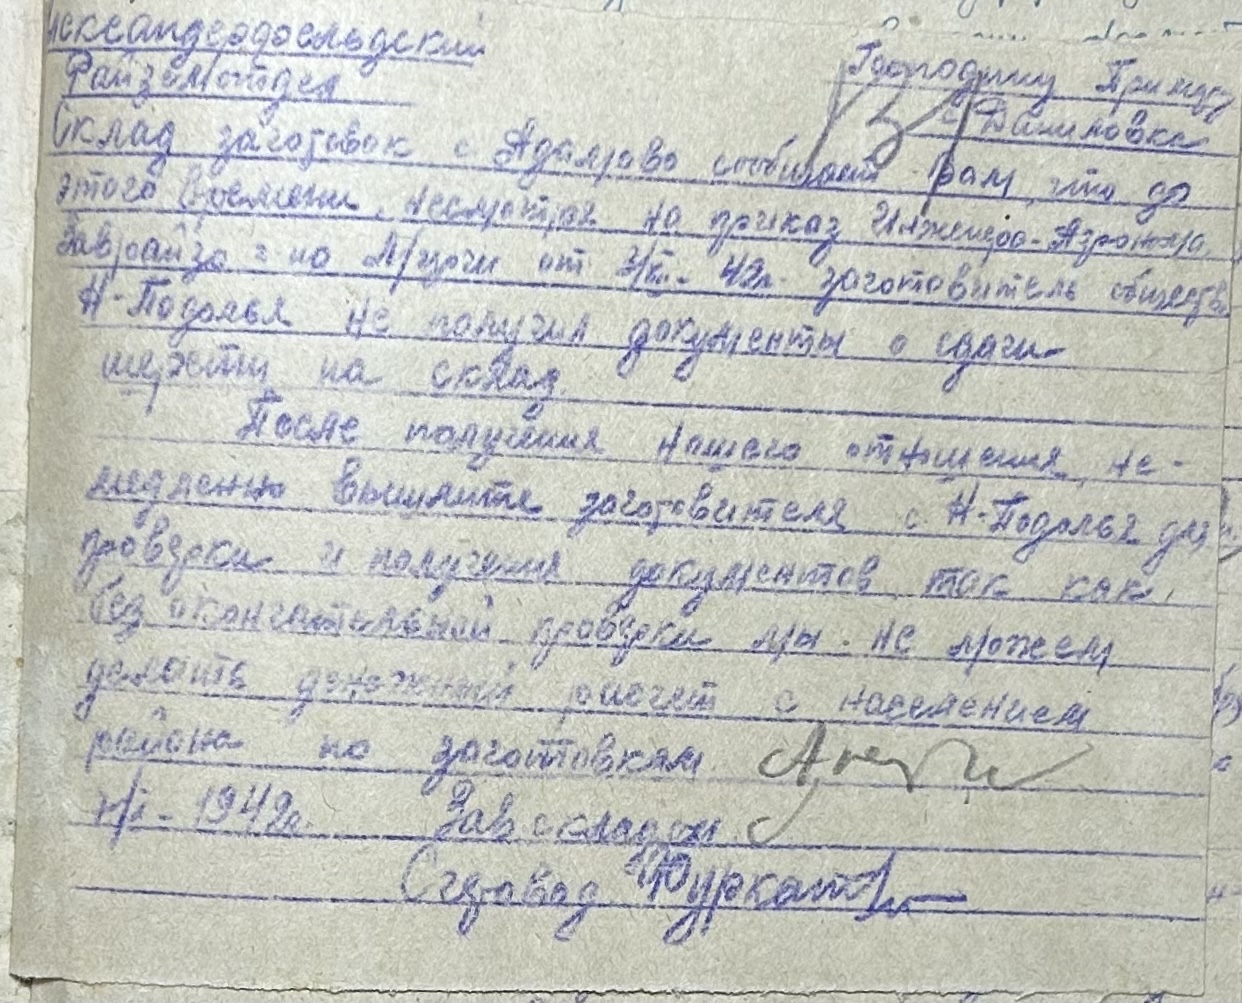 Александерфельдский
Райземотдел
Господину Примарю
с Калиновка
Склад заготовок с Адамово сообщает Вам, что до
этого времени, несмотря на приказ Инженера-Агронома
Заврайзо г-на от 42г. заготовитель обществ
Н-Подолья не получил документы о сдачи
шерсти на склад.
После получения нашего отношения, не-
медленно вышлите заготовителя с Н-Подолья для
проверки и получения документов, так как,
без окончательной проверки мы не можем
делать денежный расчет с населением
района по заготовкам
1942г. Зав складом
Счетовод